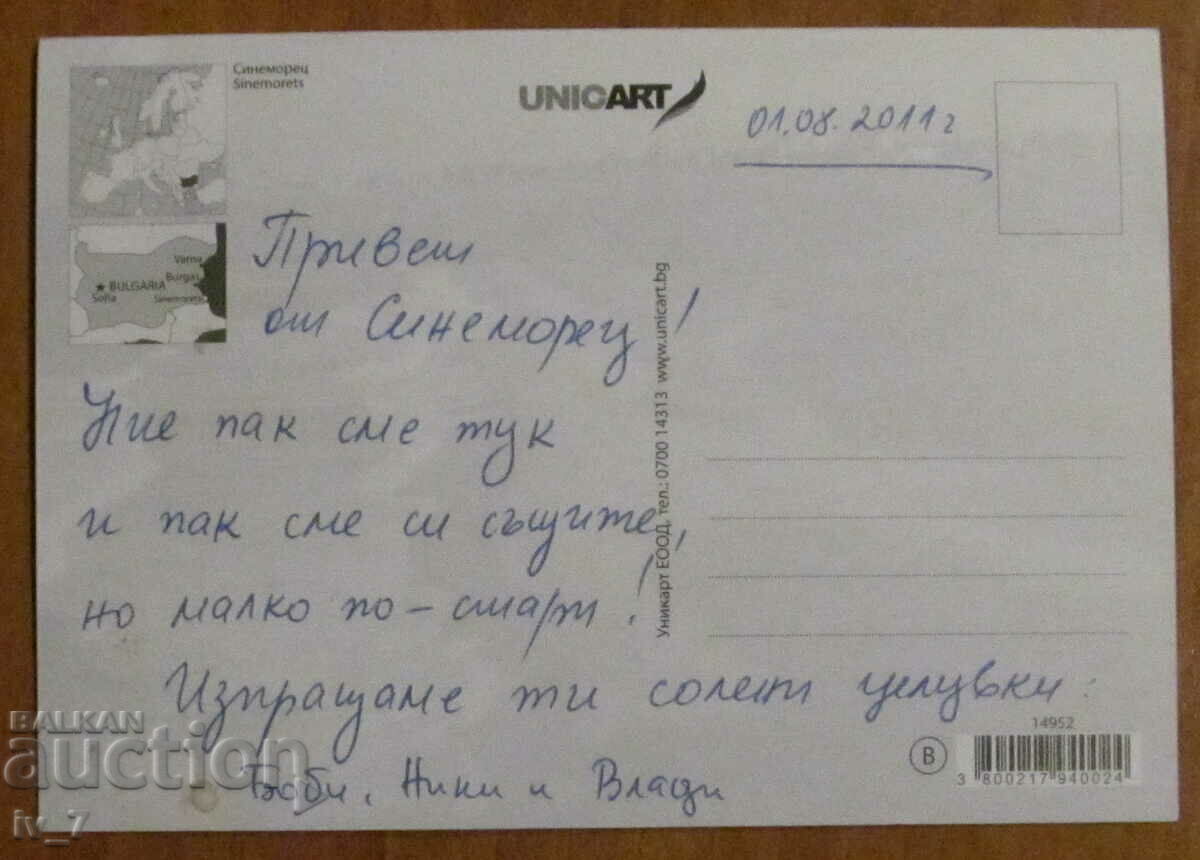 Синеморец
Sinemorets
UNICART
01.08.2011г
Varna
Burgas
BULGARIA
Sofia
Sinemorets
Привет
от Синеморец!
Ние пак сме тук
и пак сме си същите,
но малко по-стари!
Изпращаме ти солени целувки:
Ники и Влади
Уникарт ЕООД, тел.: 0700 14313 www.unicart.bg
14952
B
3 800217 940024
BALKAN
auction
iv_7